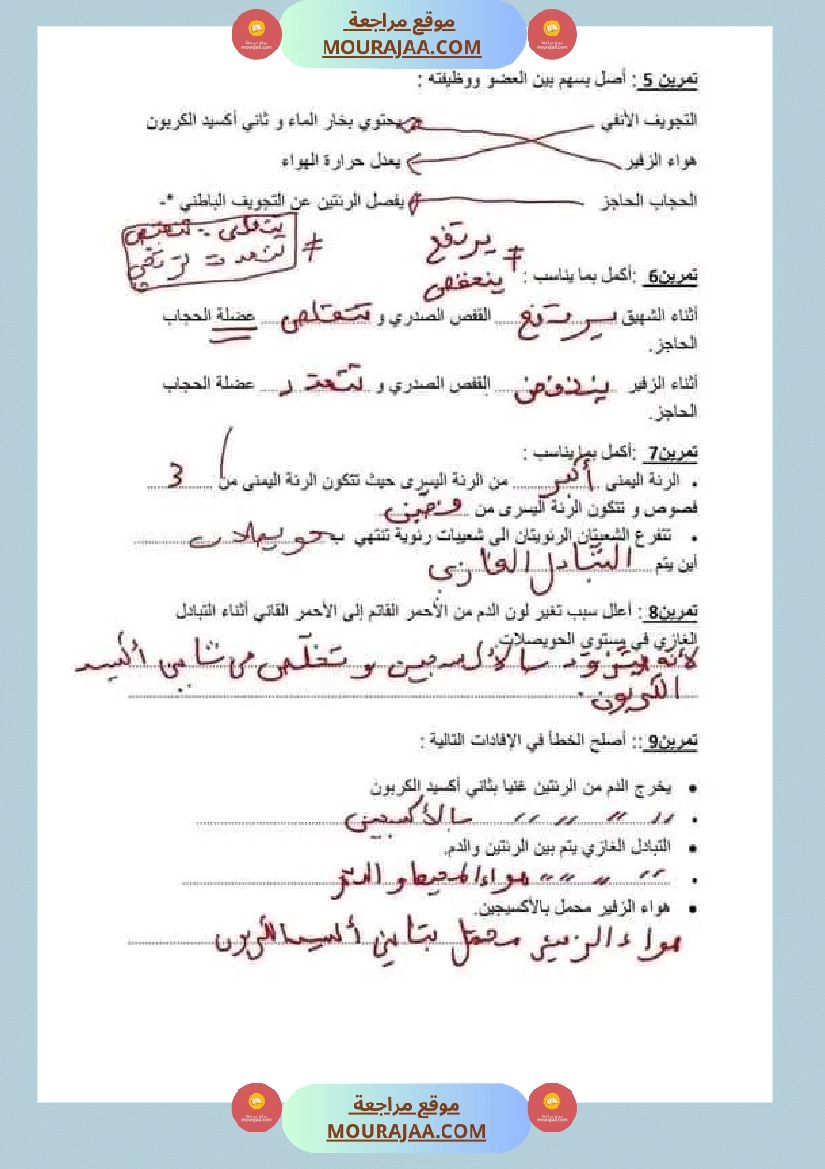 موقع مراجعة
MOURAJAA.COM
تمرين 5 : أصل بسهم بين العضو ووظيفته :
التجويف الأنفي يحتوي بخار الماء و ثاني أكسيد الكربون
هواء الزفير يعدل حرارة الهواء
الحجاب الحاجز يفصل الرئتين عن التجويف الباطني *-
يرتفع ≠ ينخفض
يتقلص - تنقبض
≠
تمرين6 :أكمل بما يناسب :
أثناء الشهيق يرتفع القفص الصدري و تتقلص عضلة الحجاب
الحاجز.
أثناء الزفير ينخفض القفص الصدري و تتمدد عضلة الحجاب
الحاجز.
تمرين7 :أكمل بما يناسب :
الرئة اليمنى أكبر من الرئة اليسرى حيث تتكون الرئة اليمنى من 3
فصوص و تتكون الرئة اليسرى من فصين
تتفرع الشعبتان الرئويتان الى شعيبات رئوية تنتهي ب حويصلات
أين يتم التبادل الغازي
تمرين8 : أعلل سبب تغير لون الدم من الأحمر القاتم إلى الأحمر القاني أثناء التبادل
الغازي في مستوى الحويصلات
لأنه يتزود بالأكسجين و تخلص من ثاني أكسيد
الكربون.
تمرين9 :: أصلح الخطأ في الإفادات التالية :
يخرج الدم من الرئتين غنيا بثاني أكسيد الكربون
〃 〃 〃 〃 〃 بالأكسجين
التبادل الغازي يتم بين الرئتين والدم.
〃 〃 〃 〃 هواء المحيط و الدم
هواء الزفير محمل بالأكسيجين.
هواء الزفير محمل بثاني أكسيد الكربون
موقع مراجعة
MOURAJAA.COM